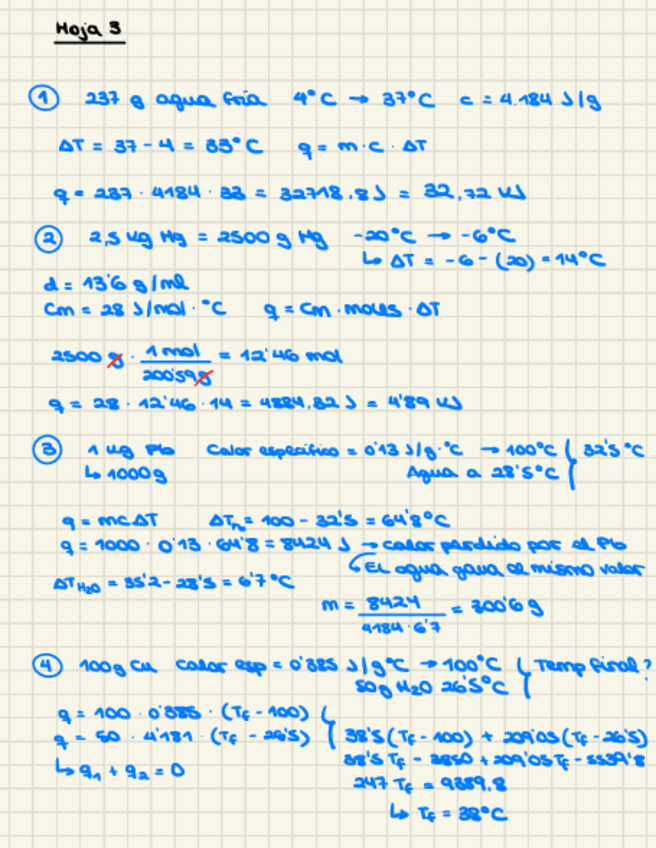 Hoja 3
① 237 g agua fría 4°C → 37°C c = 4.184 J/g
ΔT = 37 - 4 = 33°C q = m · c · ΔT
q = 237 · 4184 · 33 = 32718,8 J = 32,72 kJ
② 2,5 kg Hg = 2500 g Hg -20°C → -6°C
↳ ΔT = -6 - (20) = 14°C
d = 13'6 g/ml
Cm = 28 J/mol · °C q = Cm · moles · ΔT
2500 g · 1 mol / 200'59 g = 12'46 mol
q = 28 · 12'46 · 14 = 4884,32 J = 4'89 kJ
③ 1 kg Pb Calor específico = 0'13 J/g·°C → 100°C { 32'5°C
↳ 1000 g Agua a 28'5°C
q = mcΔT ΔT = 100 - 32'5 = 64'8°C
q = 1000 · 0'13 · 64'8 = 8424 J → calor perdido por el Pb
↳ El agua gana el mismo valor
ΔT H₂O = 35'2 - 28'5 = 6'7°C
m = 8424 / 4184 · 6'7 = 300'6 g
④ 100g Cu Calor esp = 0'385 J/g°C → 100°C { Temp final?
50g H₂O 26'5°C
q = 100 · 0'385 · (Tf - 100)
q = 50 · 4'181 · (Tf - 26'5) { 38'5 (Tf - 100) + 209'05 (Tf - 26'5)
38'5 Tf - 3850 + 209'05 Tf - 5539'8
↳ q₁ + q₂ = 0
247 Tf = 9389,8
↳ Tf = 38°C